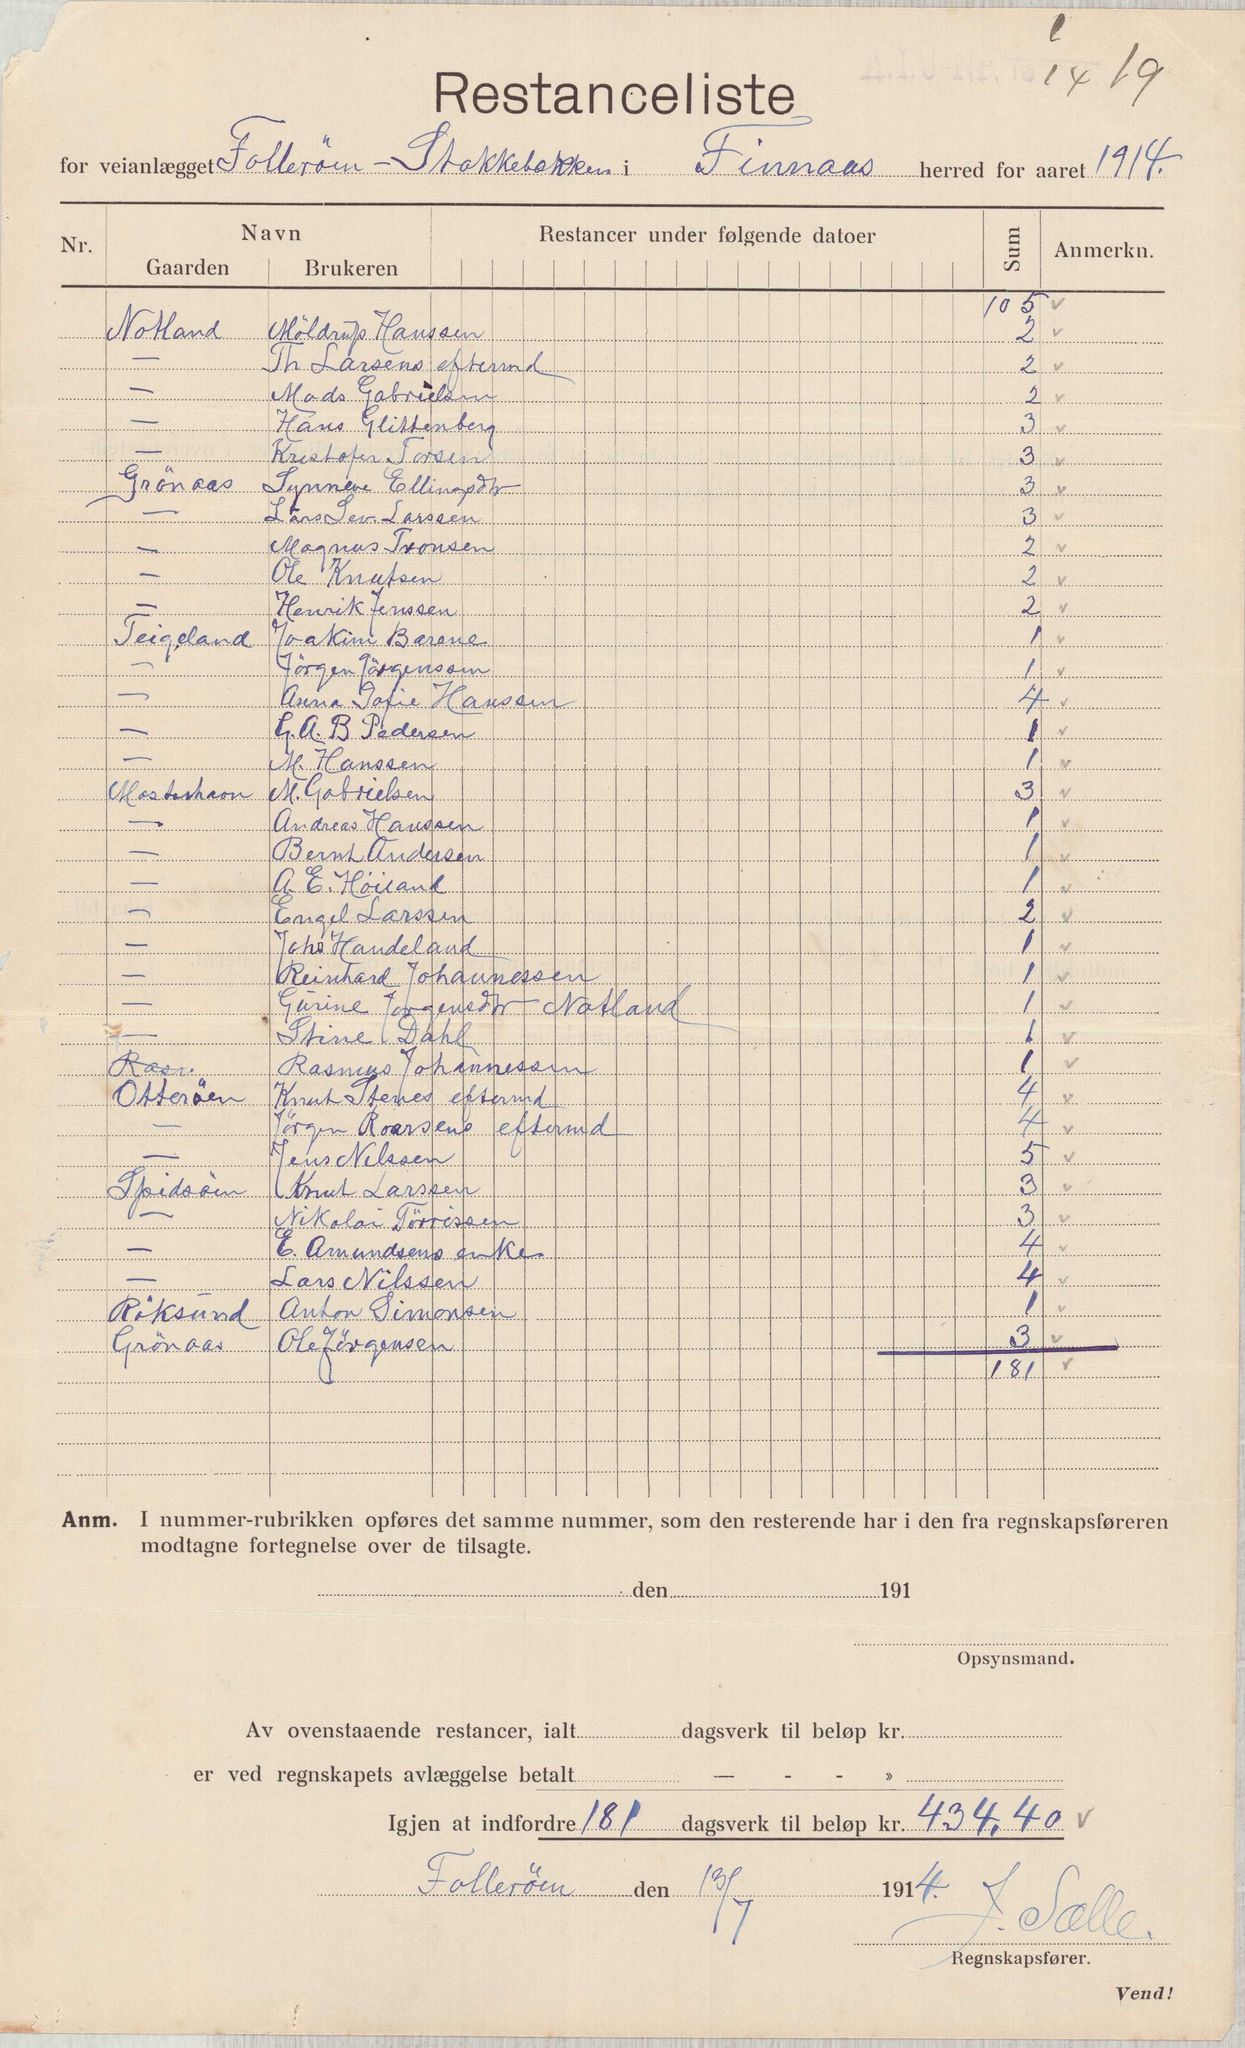 14 19
Restanceliste
for veianlægget Folleröen - Stokkebekken i Finnaas herred for aaret 1914.
Nr. Navn Restancer under følgende datoer Sum Anmerkn.
Gaarden Brukeren
105 v
Notland Möldrup Hanssen 2 v
— Th Larsens eftermd 2 v
— Mads Gabrielsen 2 v
— Hans Glittenberg 3 v
— Kristofer Torsen 3 v
Grönaas Synneve Ellingsdtr 3 v
— Lars Sev. Larssen 3 v
— Magnus Tronsen 2 v
— Ole Knutsen 2 v
— Henrik Jenssen 2 v
Teigeland Joakim Barene 1 v
— Jörgen Jörgenssen 1 v
— Anna Sofie Hanssen 4 v
— G. A. B Pedersen 1 v
— M. Hanssen 1 v
Mosterhavn M. Gabrielsen 3 v
— Andreas Hanssen 1 v
— Bernt Andersen 1 v
— A. E. Höiland 1 v
— Engel Larssen 2 v
— Johs Handeland 1 v
— Reinhard Johannessen 1 v
— Gurine Jorgensdtr Notland 1 v
— Stine Dahl 1 v
Rasmus Johannessen 1 v
Otteröen Knut Stenes eftermd 4 v
— Jörgen Roarsens eftermd 4 v
— Jens Nilssen 5 v
Spidsöen Knut Larssen 3 v
— Nikolai Törrissen 3 v
— E. Amundsens enke 4 v
— Lars Nilssen 4 v
Röksund Anton Simonsen 1 v
Grönaas Ole Jörgensen 3 v
181 v
Anm. I nummer-rubrikken opføres det samme nummer, som den resterende har i den fra regnskapsføreren
modtagne fortegnelse over de tilsagte.
den 191
Opsynsmand.
Av ovenstaaende restancer, ialt dagsverk til beløp kr.
er ved regnskapets avlæggelse betalt — - - »
Igjen at indfordre 181 dagsverk til beløp kr. 434,40 v
Folleröen den 13/7 1914.
J. Sælle.
Regnskapsfører.
Vend!